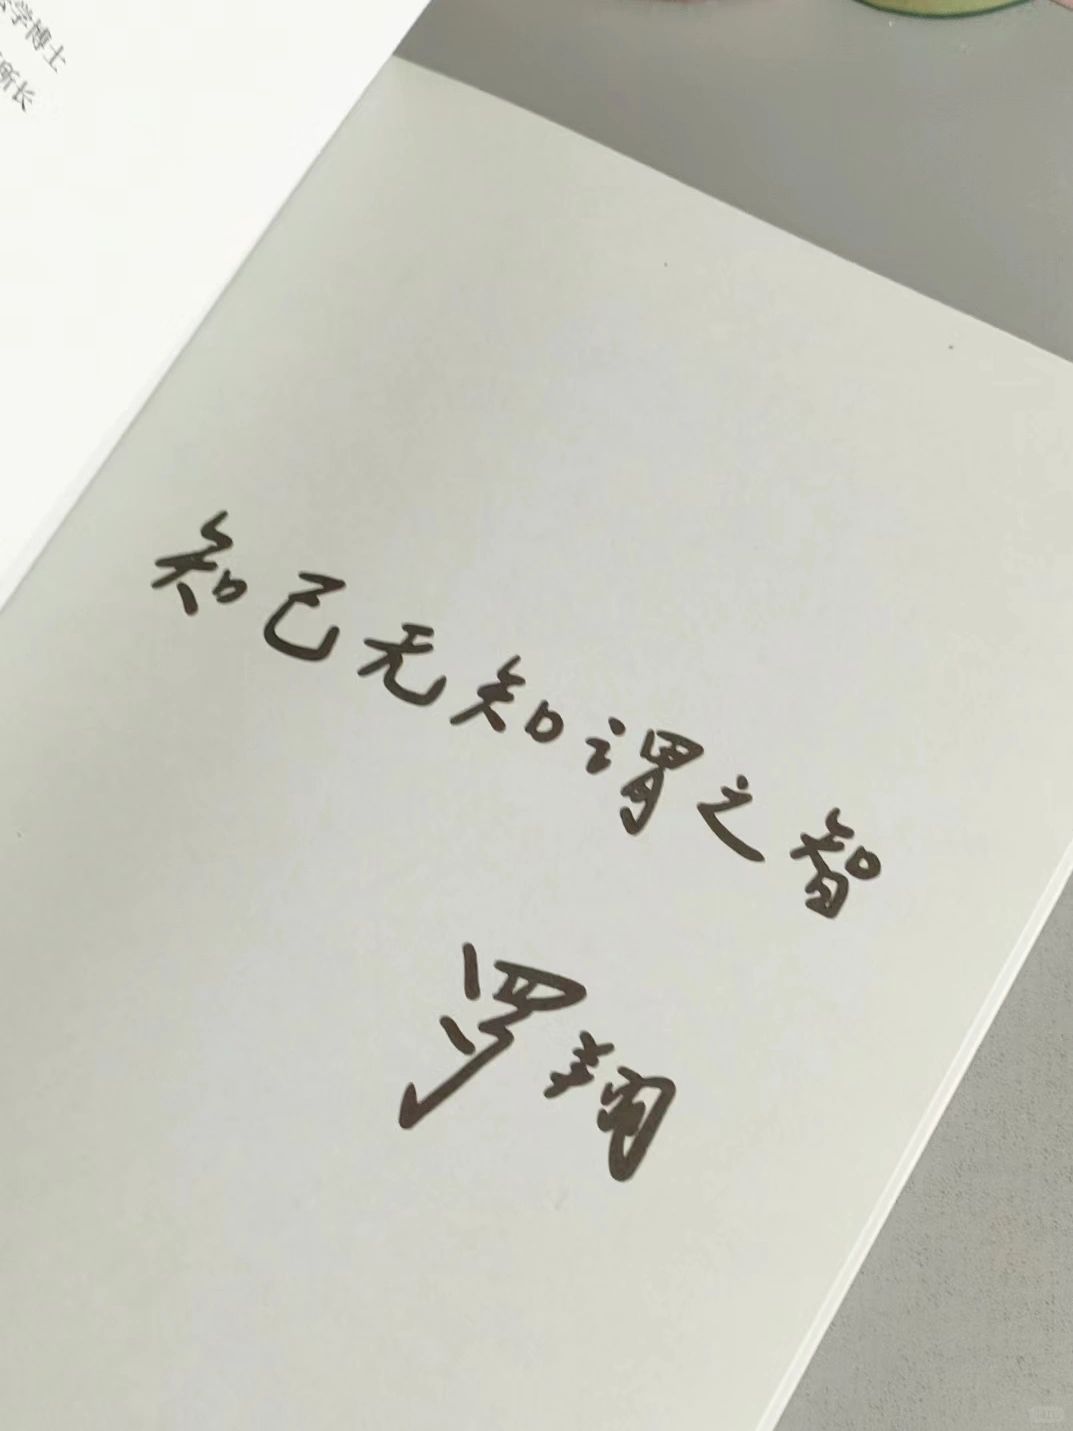 学博士
所长
知己无知谓之智
罗翔